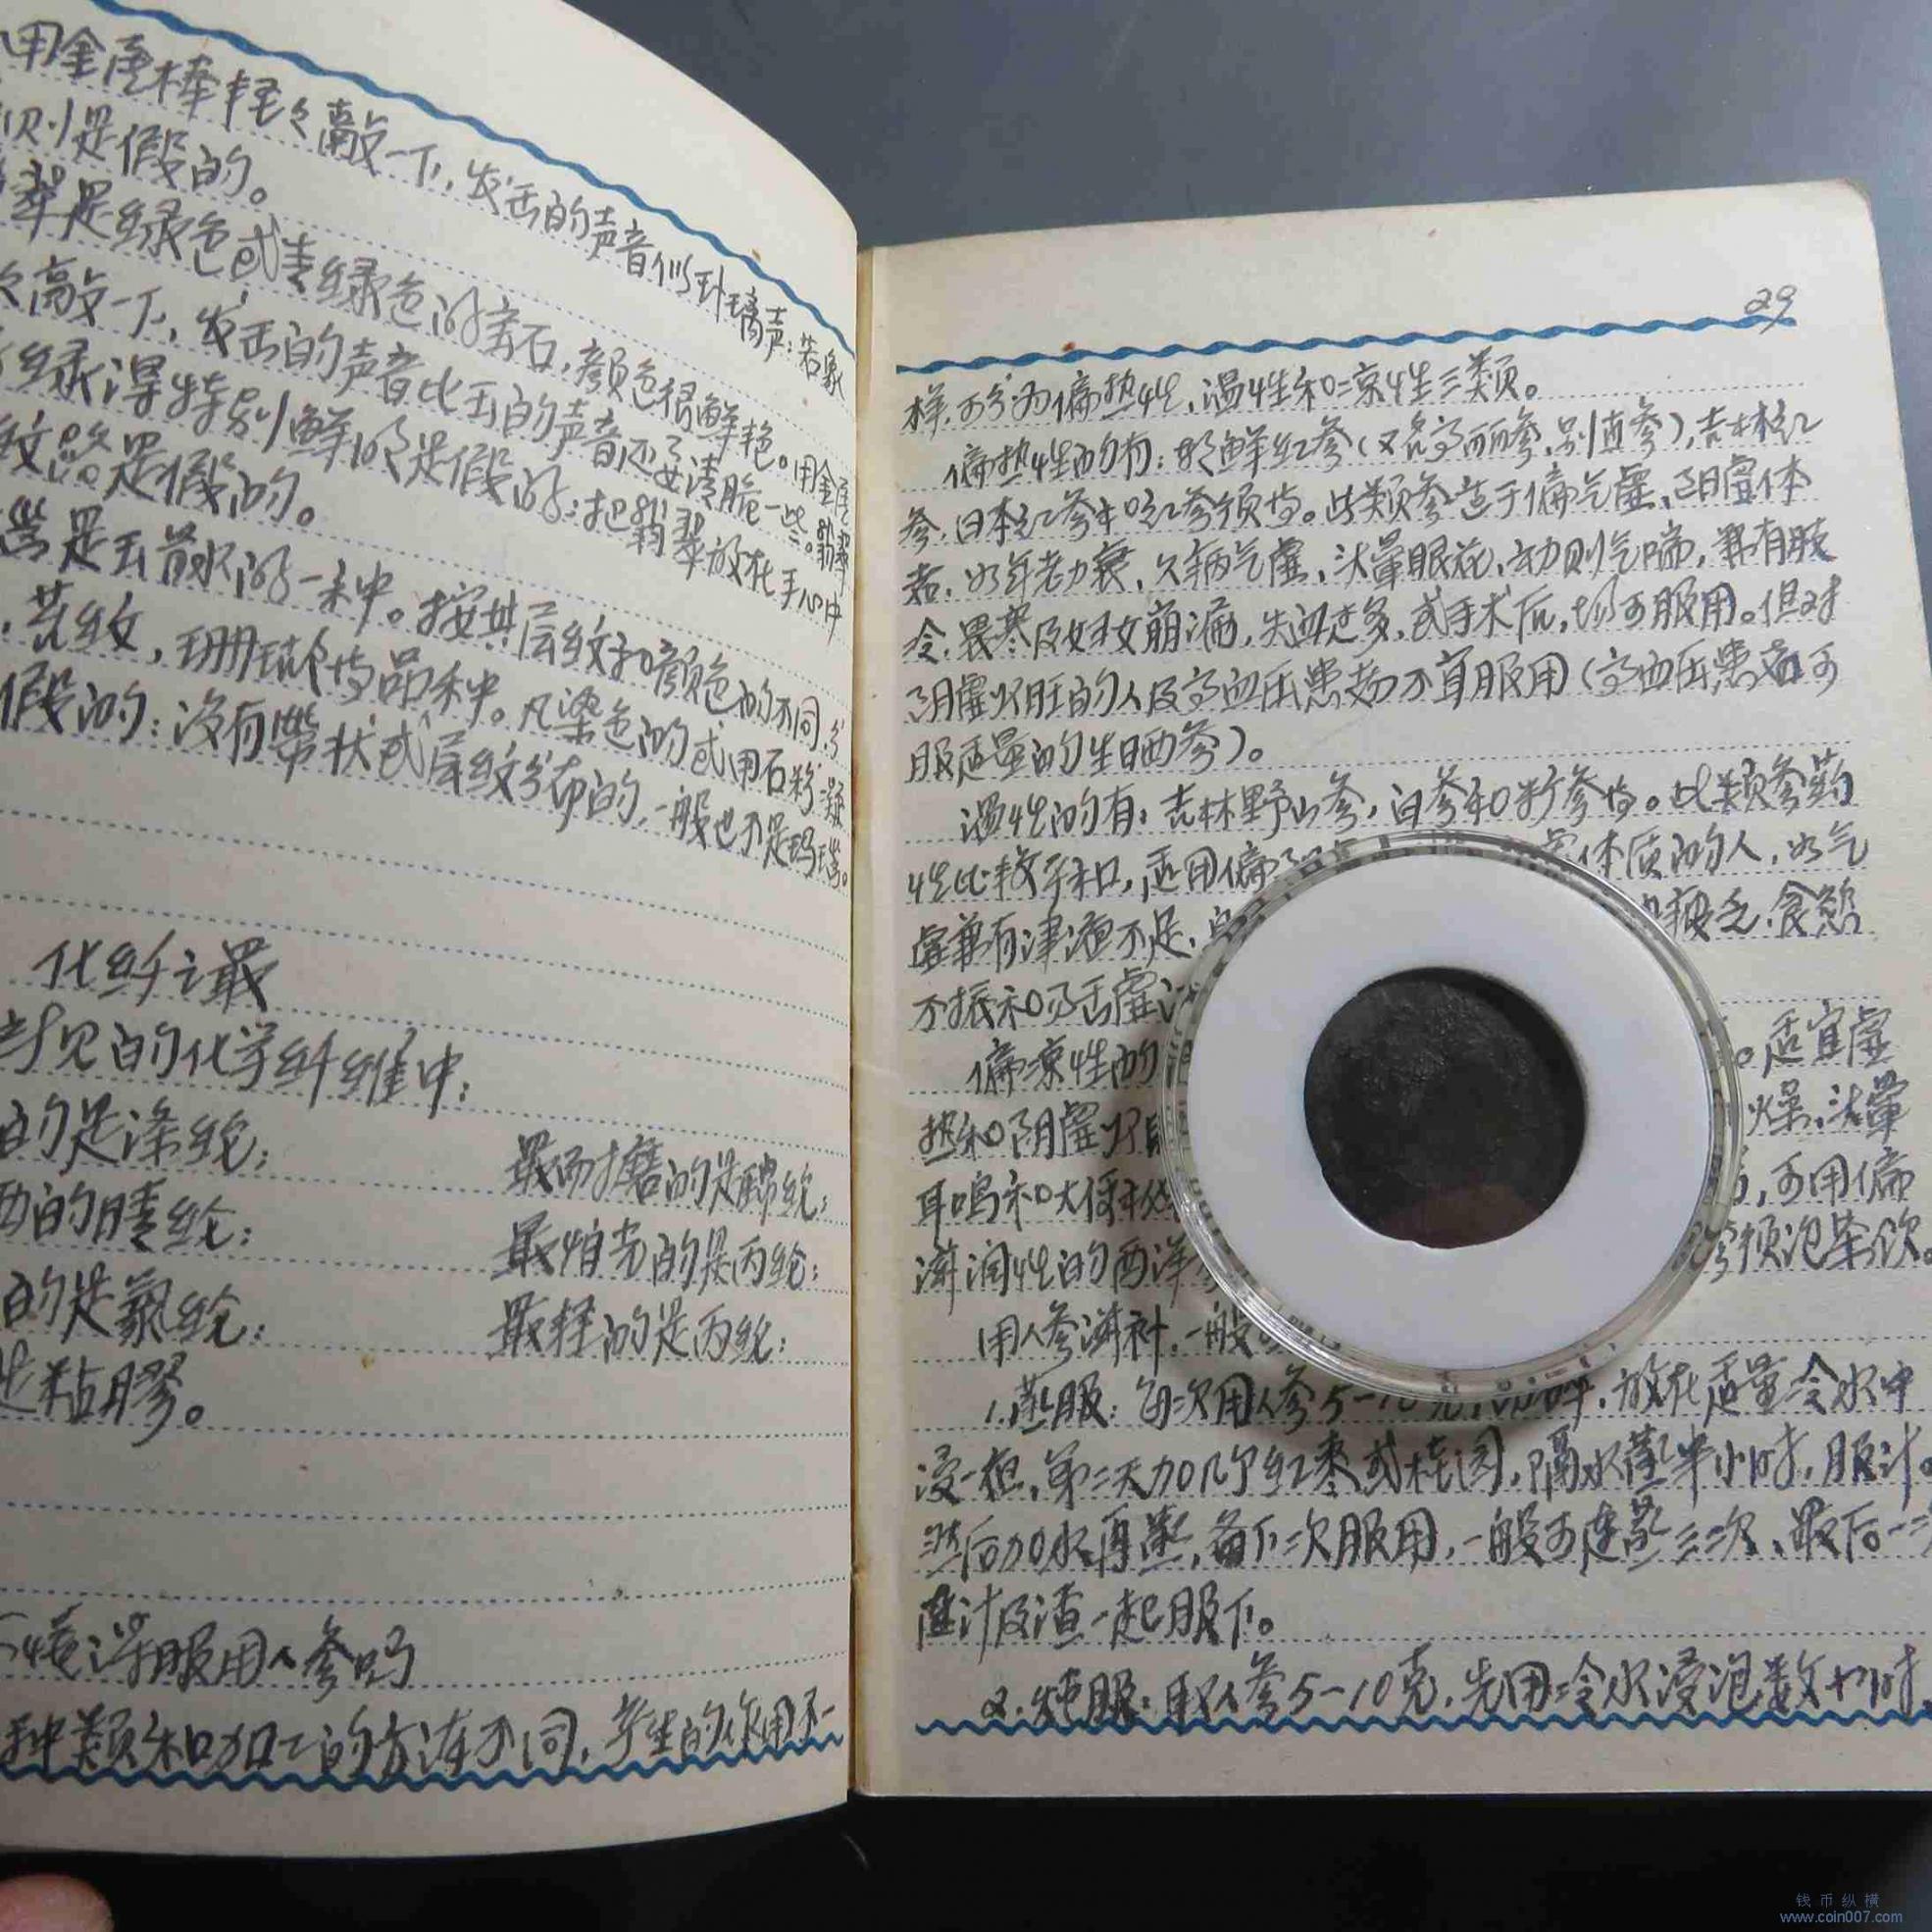 用金属棒轻々敲一下，发出的声音似玻璃声；若象
则是假的。
翠是绿色或青绿色的宝石，颜色很鲜艳。用金属
敲一下，发出的声音比玉的声音还要清脆一些。翡翠
绿得特别鲜的是假的；把翡翠放在手心中
纹路是假的。
是玉髓的一种。按其层纹和颜色的不同，分
苔纹，珊瑚等品种。凡染色的或用石粉凝
假的；没有带状或层纹分布的，一般也不是玛瑙。
化纤之最
常见的化学纤维中：
的是涤纶；
最耐磨的是锦纶；
的腈纶；
最怕光的是丙纶；
的是氯纶；
最轻的是丙纶；
是粘胶。
懂得服用人参吗
种类和加工的方法不同，产生的作用不一
29
样，可分为偏热性，温性和凉性三类。
偏热性的有：朝鲜红参（又名高丽参，别直参），吉林红
参，日本红参和红参须等。此类参适于偏气虚、阳虚体
者，如年老力衰、久病气虚、头晕眼花，动则气喘，兼有肢
冷，畏寒及妇女崩漏，失血过多，或手术后，均可服用。但对
阴虚火旺的人及高血压患者不宜服用（高血压患者可
服适量的生晒参）。
温性的有：吉林野山参，白参和野参等。此类参药
性比较平和，适用偏 体质的人，如气
虚兼有津液不足， 疲乏，食慾
不振和
偏凉性的 。适宜虚
热和阴虚火旺 燥，头晕
耳鸣和大便秘 ，可用偏
滋润性的西洋参 参须泡茶饮。
用人参进补，一般
1.蒸服：每次用人参5-10克，切碎，放在适量冷水中
浸一夜，第二天加几个红枣或桂圆，隔水蒸半小时，服汁。
然后加水再蒸，备下次服用，一般可连蒸三次，最后一次
连汁及渣一起服下。
2.炖服：取人参5-10克，先用冷水浸泡数小时
钱币纵横
www.coin007.com